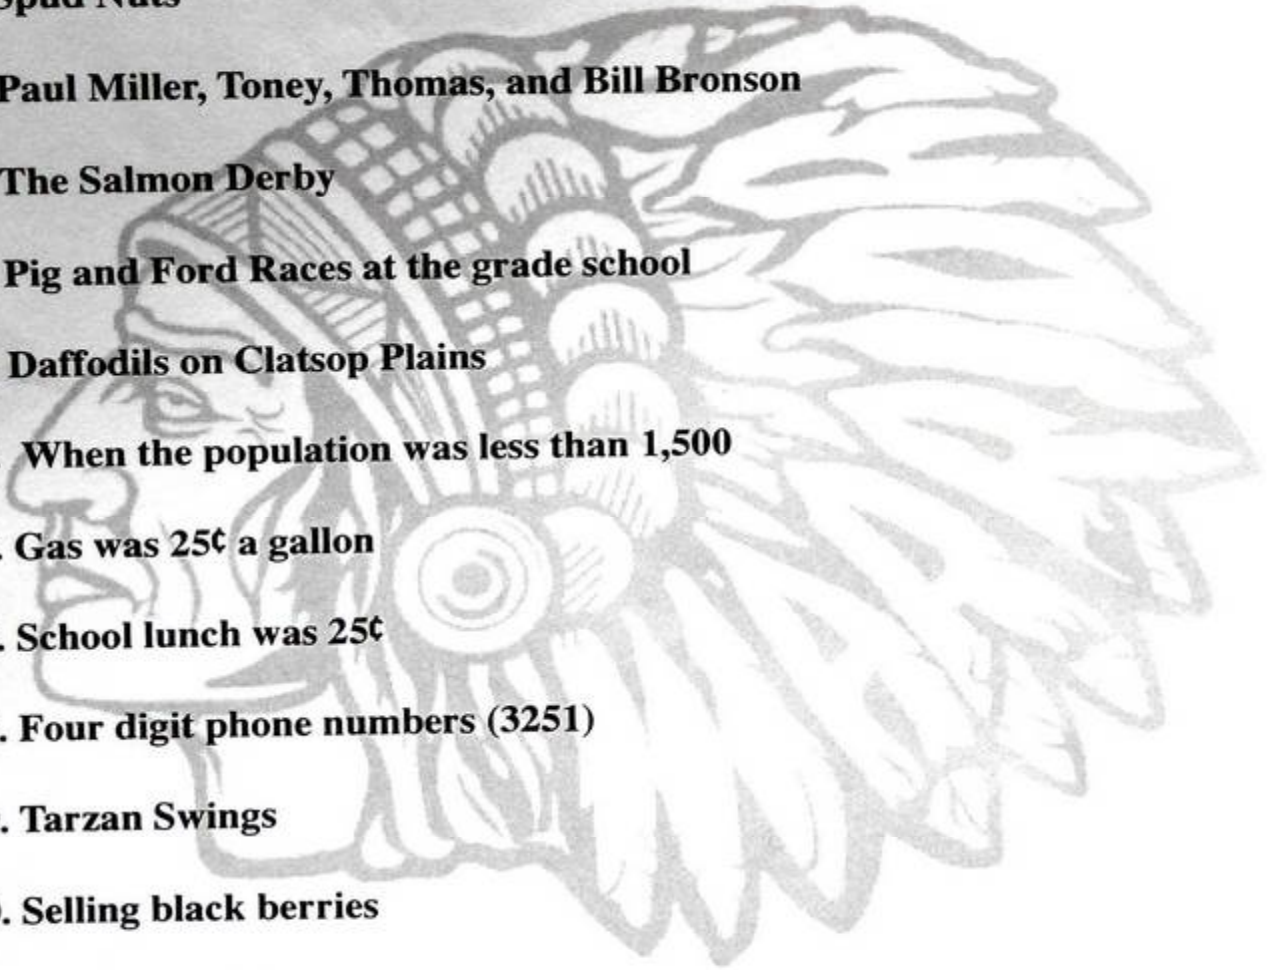 Spud Nuts
Paul Miller, Toney, Thomas, and Bill Bronson
The Salmon Derby
Pig and Ford Races at the grade school
Daffodils on Clatsop Plains
When the population was less than 1,500
. Gas was 25¢ a gallon
. School lunch was 25¢
. Four digit phone numbers (3251)
. Tarzan Swings
. Selling black berries